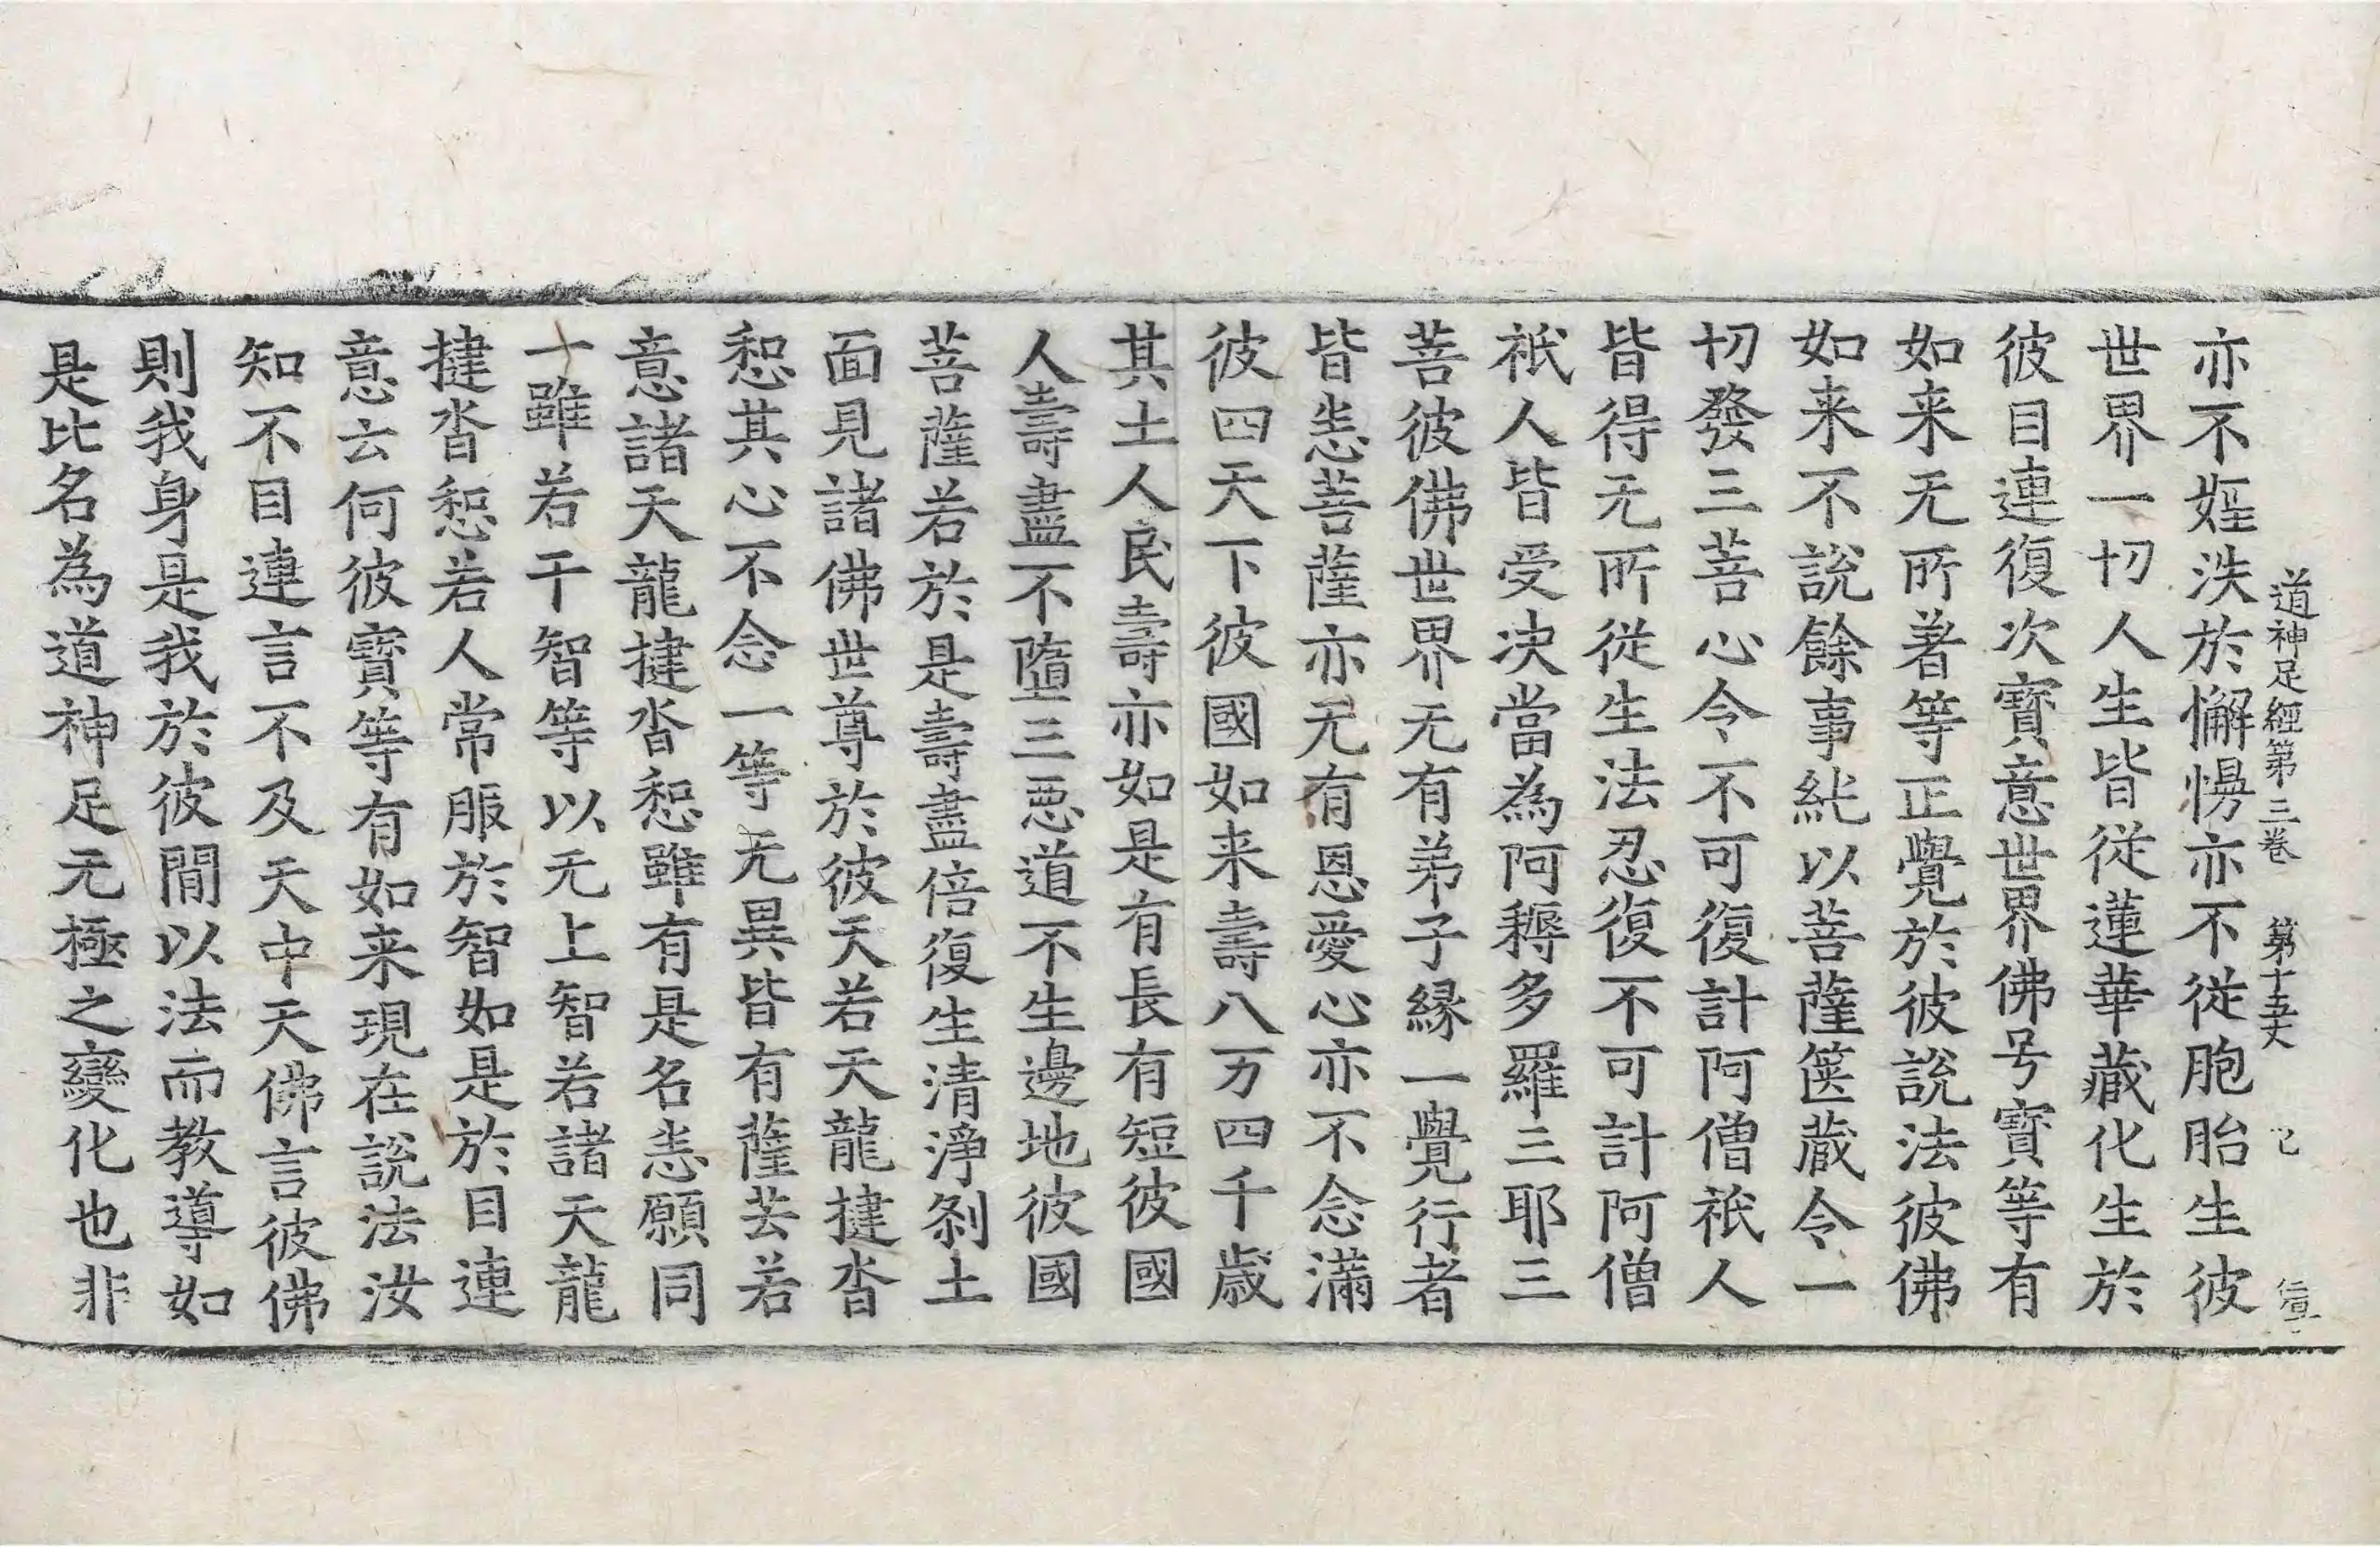 道神足經第三卷　第十五丈　已
亦不婬泆於懈慢亦不從胞胎生彼
世界一切人生皆從蓮華藏化生於
彼目連復次寶意世界佛号寶等有
如来无所著等正覺於彼說法彼佛
如来不說餘事純以菩薩篋藏令一
切發三菩心令不可復計阿僧祇人
皆得无所從生法忍復不可計阿僧
祇人皆受決當為阿耨多羅三耶三
菩彼佛世界无有弟子縁一覺行者
皆恚菩薩亦无有恩愛心亦不念滿
彼四天下彼國如来壽八万四千歲
其土人民壽亦如是有長有短彼國
人壽盡不墮三惡道不生邊地彼國
菩薩若於是壽盡倍復生清淨剎土
面見諸佛世尊於彼天若天龍揵沓
惒其心不念一等无異皆有薩芸若
意諸天龍揵沓惒雖有是名恚願同
一雖若干智等以无上智若諸天龍
揵沓惒若人常服於智如是於目連
意云何彼寶等有如来現在說法汝
知不目連言不及天中天佛言彼佛
則我身是我於彼間以法而教導如
是比名為道神足无極之變化也非